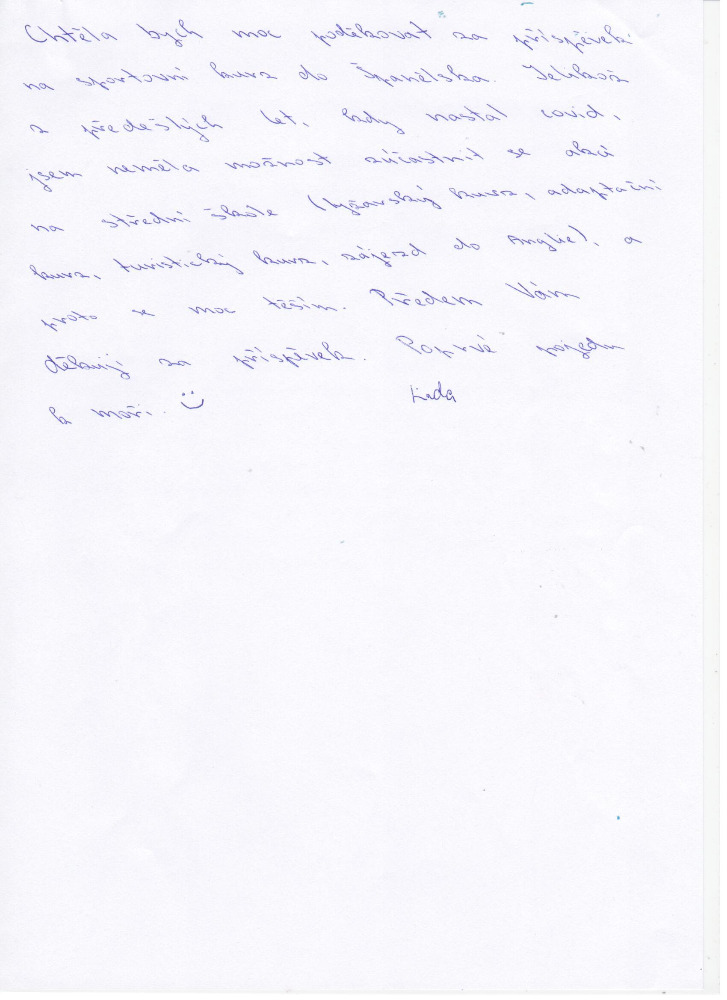 Chtěla bych moc poděkovat za příspěvek
na sportovní kurz do Španělska. Jelikož
z předešlých let, kdy nastal covid,
jsem neměla možnost zúčastnit se akcí
na střední škole (lyžařský kurz, adaptační
kurz, turistický kurz, zájezd do Anglie), a
proto se moc těším. Předem Vám
děkuji za příspěvek. Poprvé pojedu
k moři. ☺ Lída